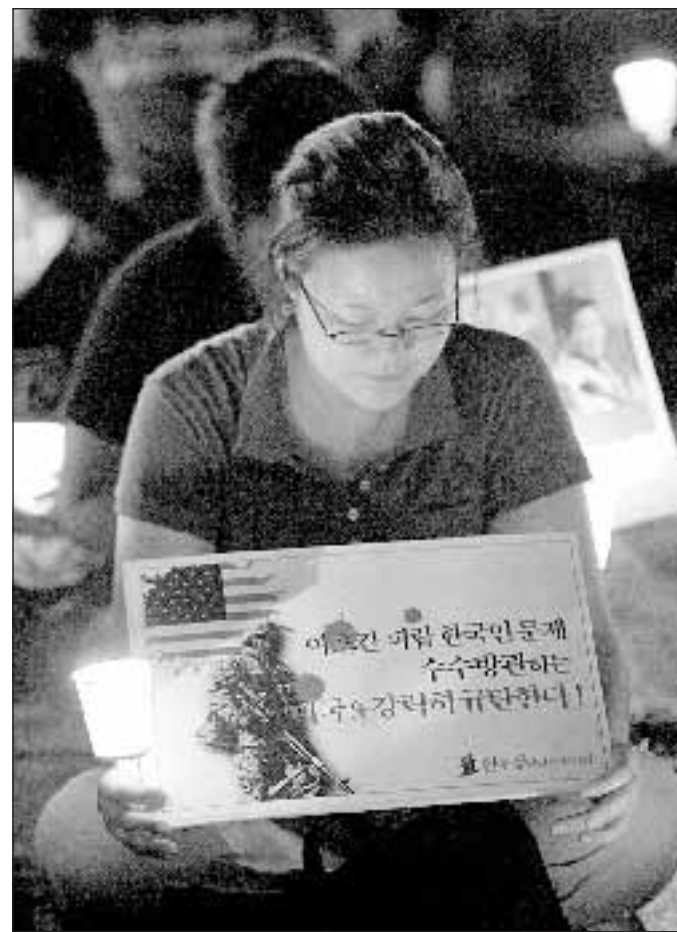 아프간 피랍 한국인 문제
수수방관하는
미국을 강력히 규탄한다!